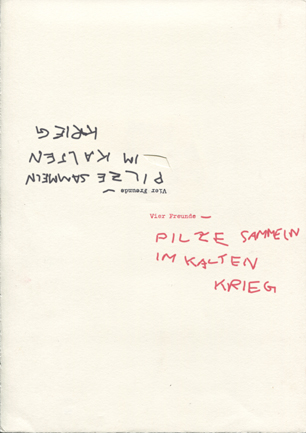 KRIEG
IM KALTEN
PILZE SAMMELN
Vier Freunde —
Vier Freunde —
PILZE SAMMELN
IM KALTEN
KRIEG